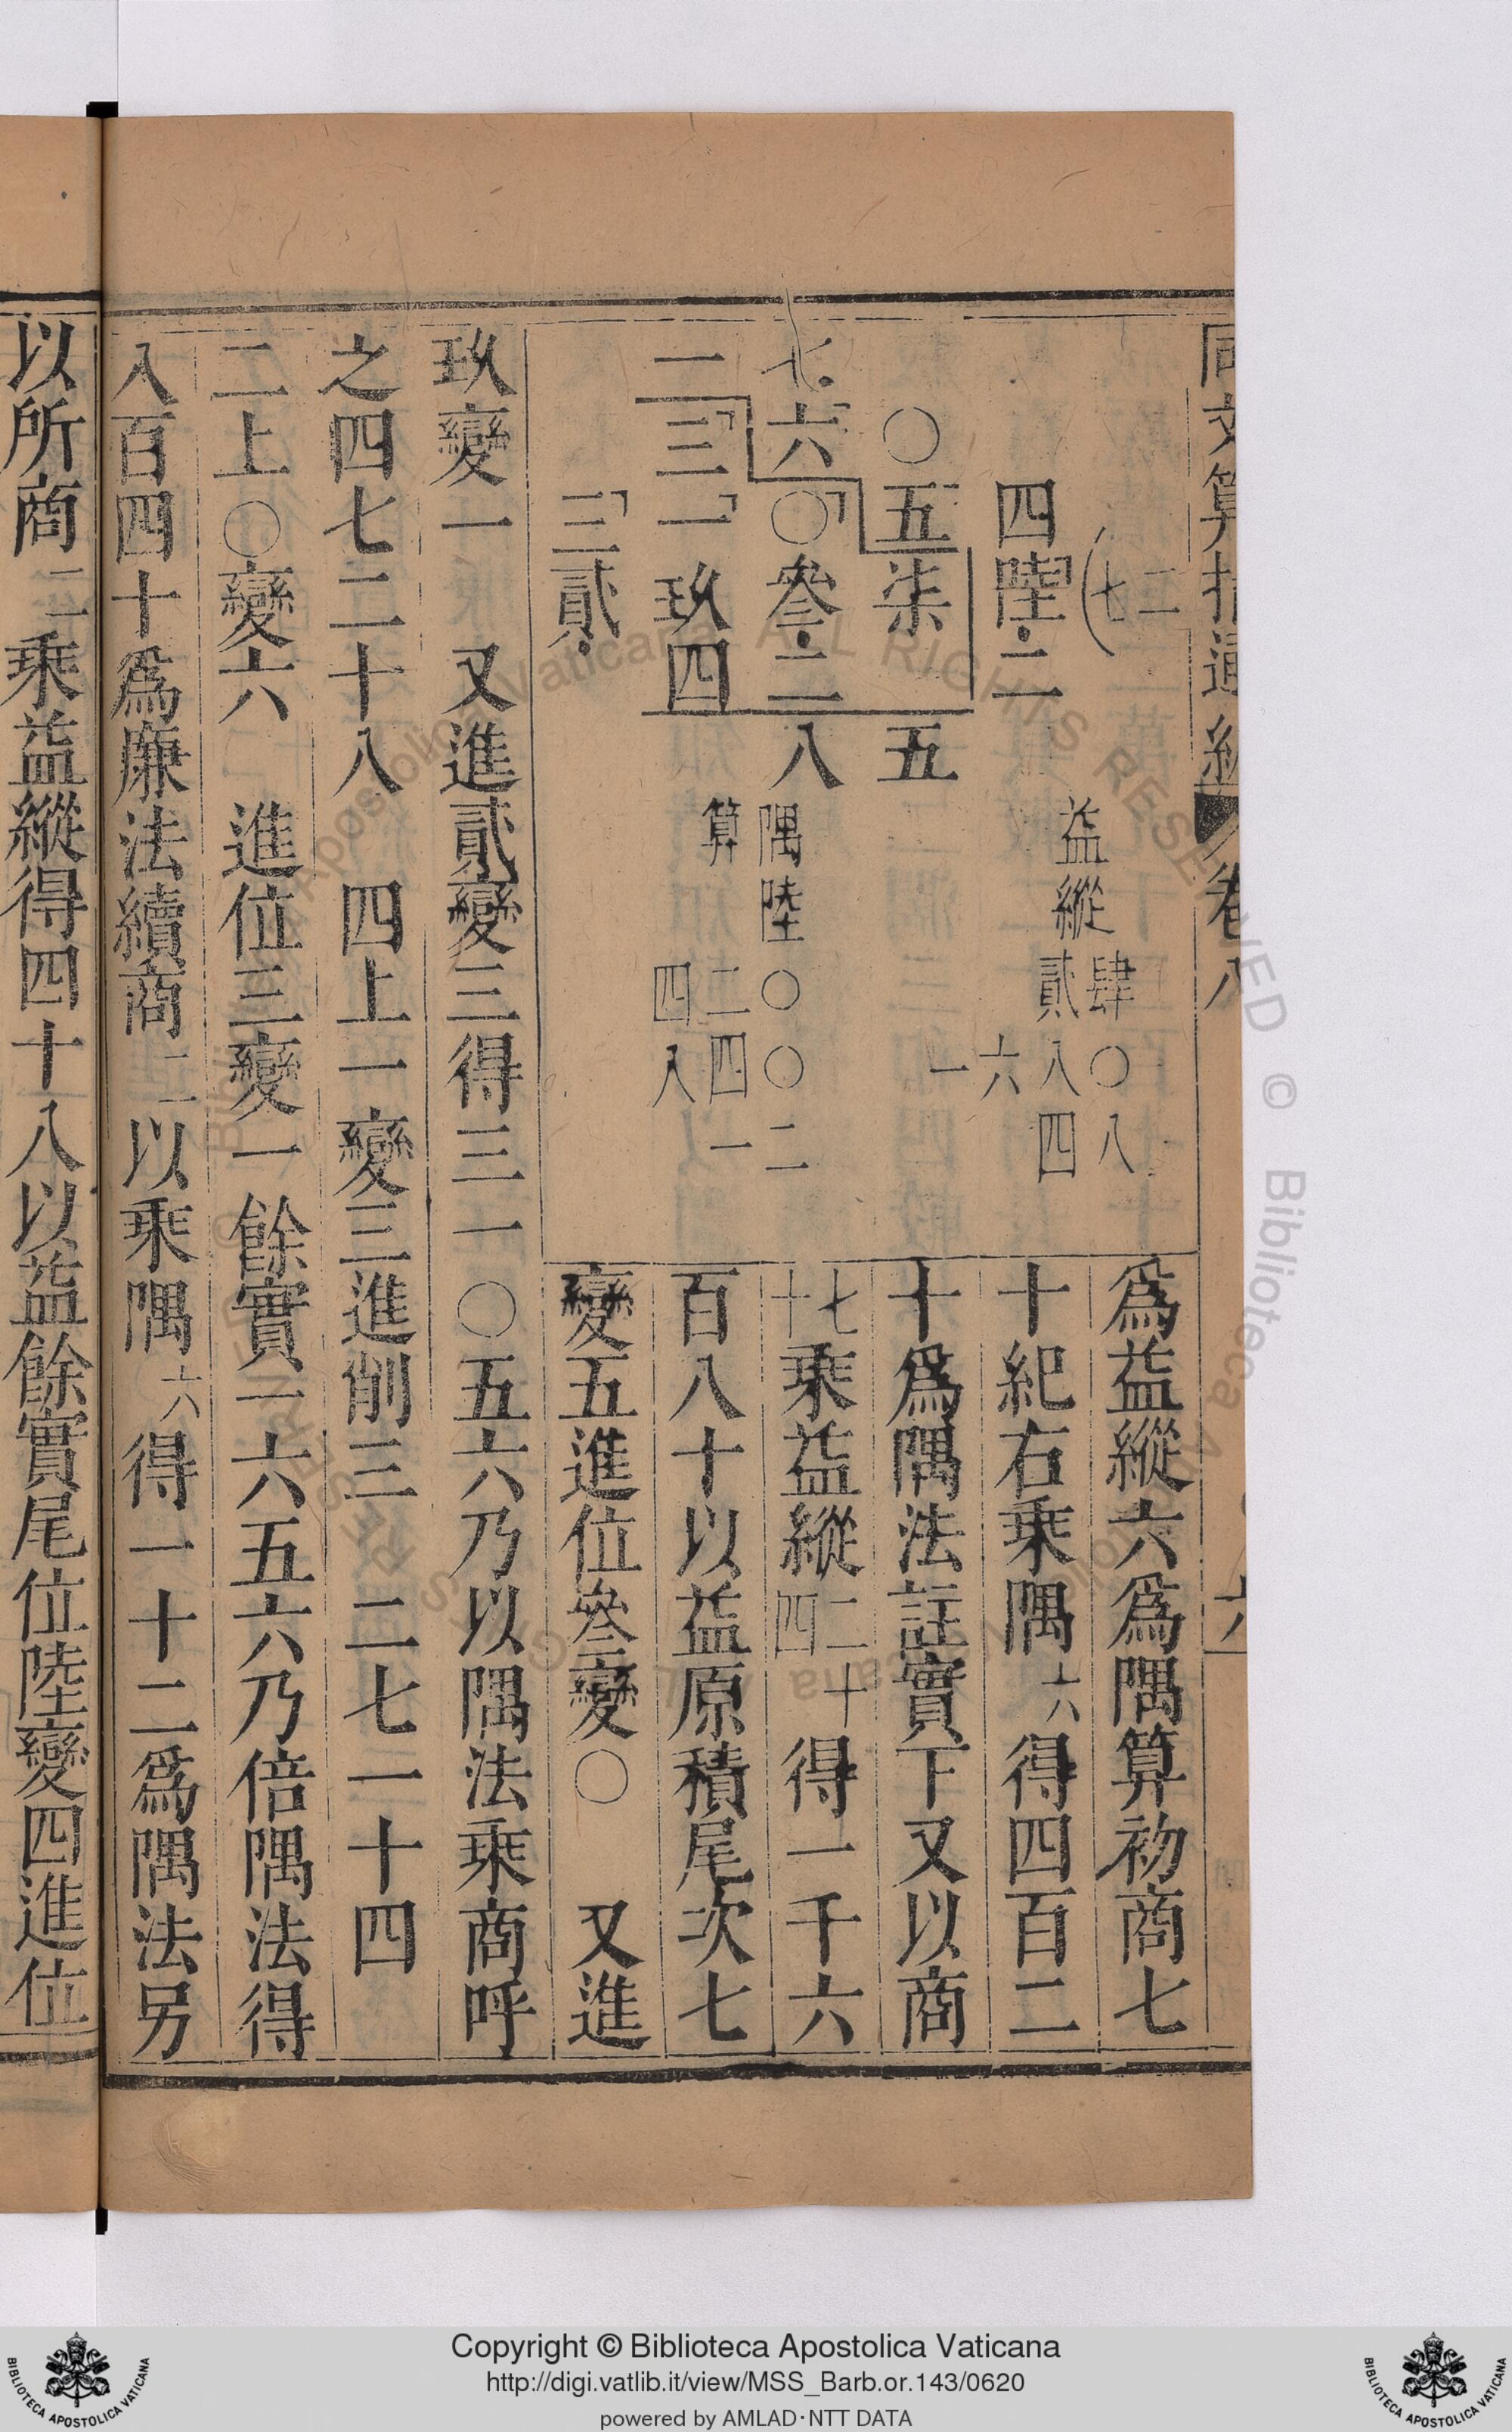 同文算指通編 卷八 六
七二
四陸二
〇五柒五
七六〇叁二八
一三一玖四
三貳
益縱
肆〇八
貳八四
六
一
隅陸〇〇二
算
二四一
四八
為益縱六為隅算初商七
十紀右乘隅六得四百二
十為隅法註實下又以商
七十乘益縱二十四得一千六
百八十以益原積尾次七
變五進位叄變〇 又進
玖變一 又進貳變三得三一〇五六乃以隅法乘商呼
之四七二十八 四上一變三進削三 二七一十四
二上〇變六 進位三變一餘實一六五六乃倍隅法得
八百四十為廉法續商二以乘隅六得一十二為隅法另
以所商二乘益縱得四十八以益餘實尾位陸變四進位
Copyright © Biblioteca Apostolica Vaticana
http://digi.vatlib.it/view/MSS_Barb.or.143/0620
powered by AMLAD·NTT DATA
BIBLIOTECA APOSTOLICA VATICANA
BIBLIOTECA APOSTOLICA VATICANA